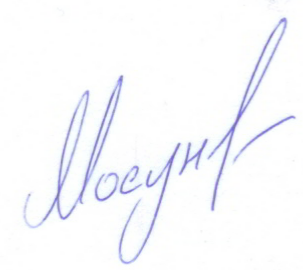 Мосун